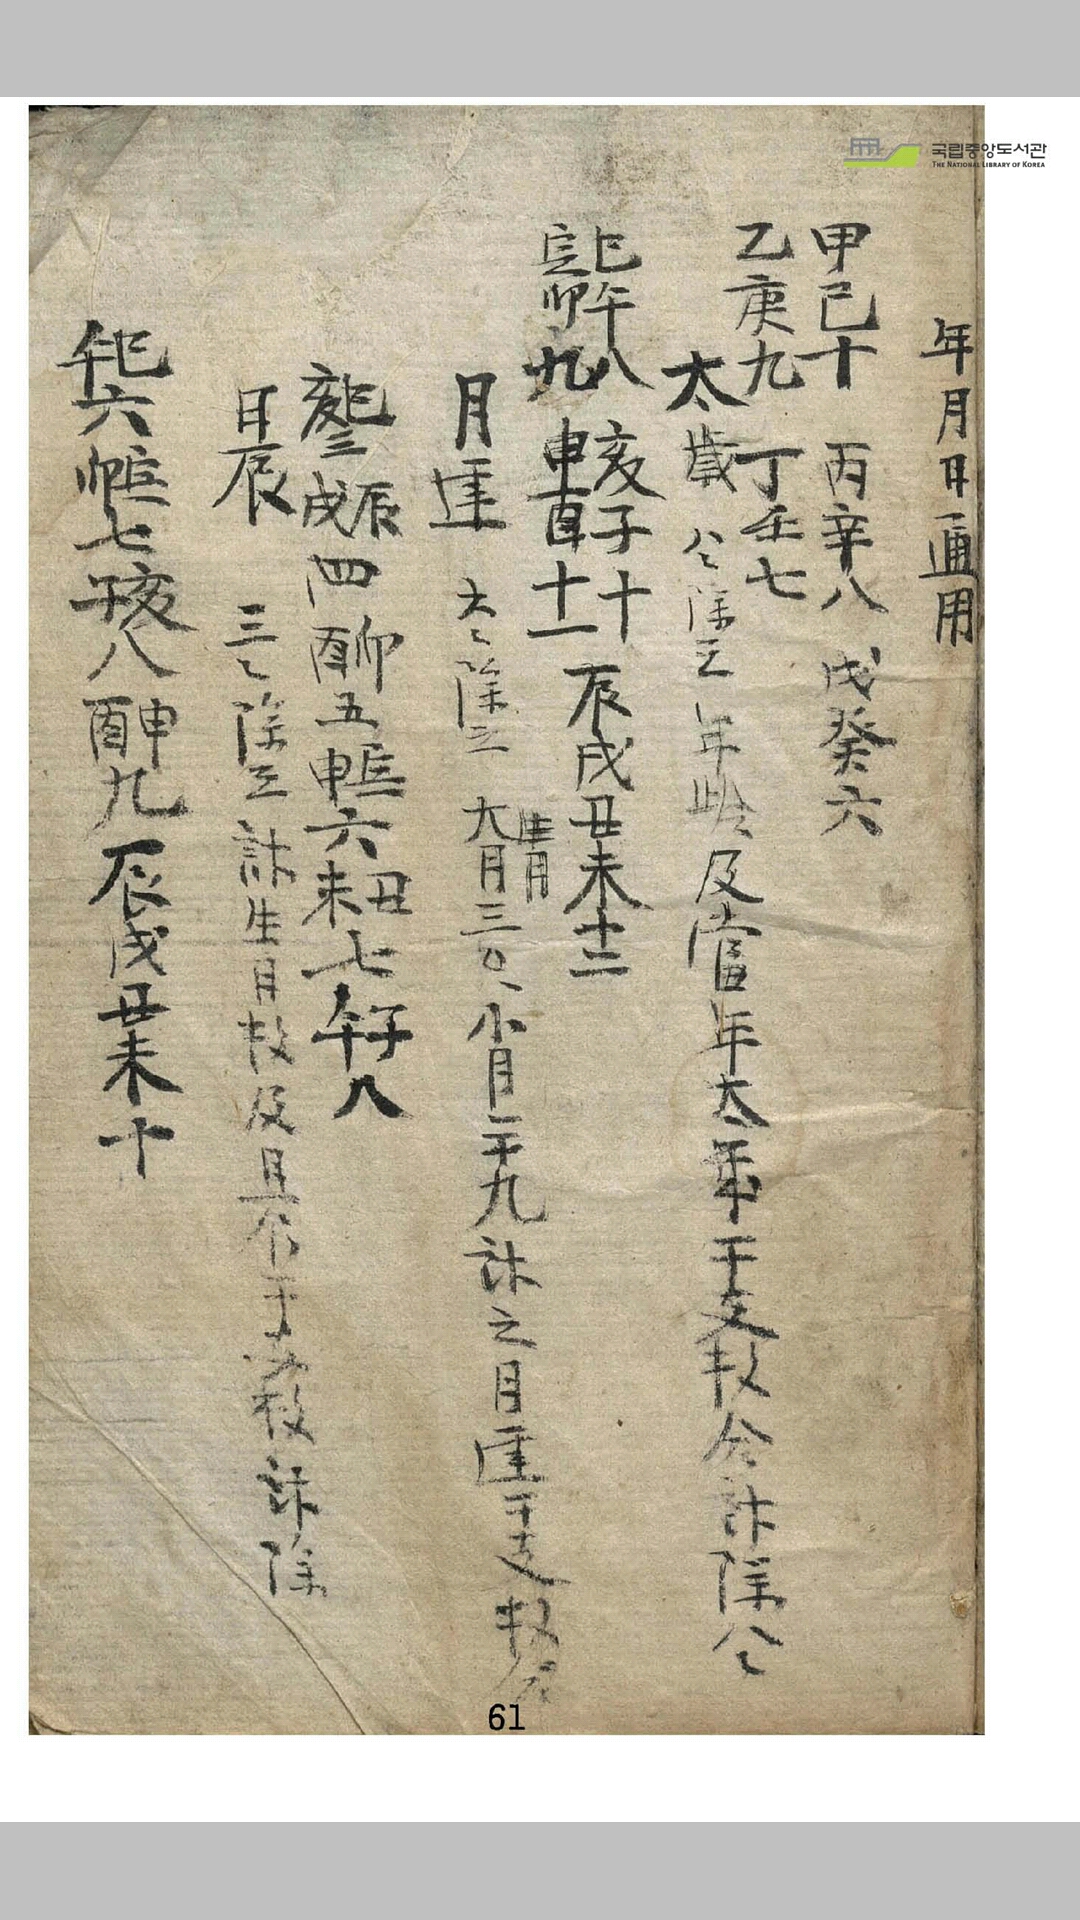 국립중앙도서관
THE NATIONAL LIBRARY OF KOREA
年月日通用
甲己十 丙辛八 戊癸六
乙庚九 丁壬七
太歲 八八除之 年 及當年太 年干支 合計除八
巳午八 亥子十 辰戌丑未十二
寅卯九 申酉十一
月運 六六除之 生月 大月三 小月二十九計之 月運干支
巳亥三 辰戌四 卯酉五 寅申六 丑未七 子午八
日辰 三三除之 計生月 及 計除
巳午六 寅卯七 亥子八 申酉九 辰戌丑未十
61